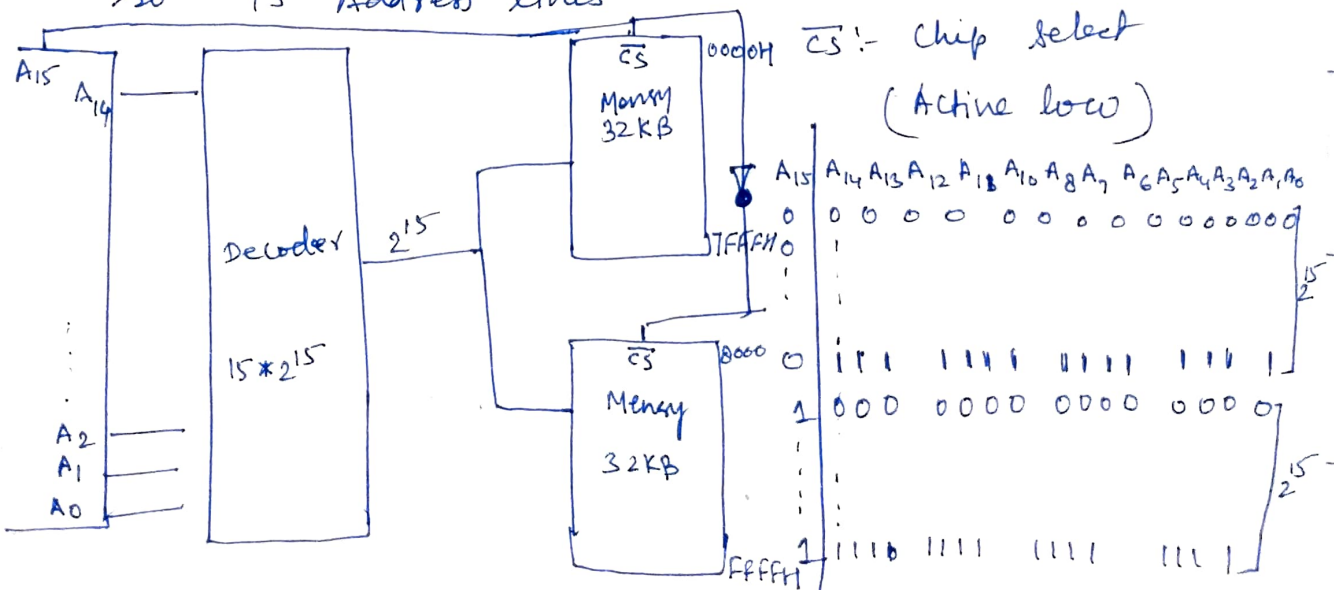 15 Address lines
A15
A14
Decoder
15*2^15
A2
A1
A0
2^15
CS̅
Memory
32KB
0000H
7FFFH
CS̅
Memory
32KB
8000
FFFFH
CS̅ :- Chip select
(Active low)
A15 A14 A13 A12 A11 A10 A8 A7 A6 A5 A4 A3 A2 A1 A0
0 0 0 0 0 0 0 0 0 0 0 0 0 0 0
0 1
0 111 1111 1111 111 1
2^15
1 000 0000 0000 000 0
1 1111 1111 1111 111 1
2^15